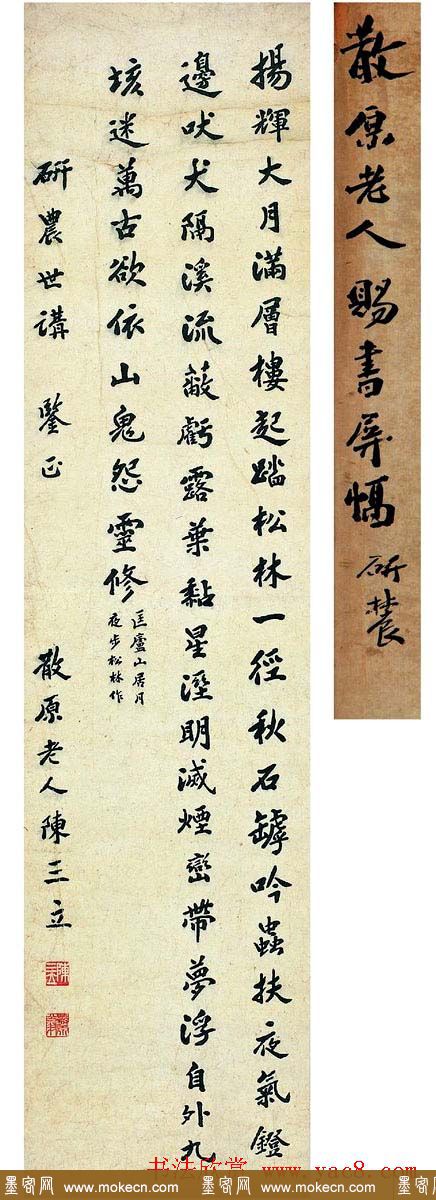 散原老人賜書屏幅 研農
揚輝大月滿層樓起踏松林一徑秋石罅吟蟲扶夜氣鐙
邊吠犬隔溪流蔽虧露葉黏星溼明滅煙巒帶夢浮自外九
垓迷萬古欲依山鬼怨靈修
匡廬山居月
夜步松林作
研農世講 鑒正 散原老人陳三立
书法欣赏 www.yac8.com
墨客网 www.mokecn.com 墨客网 www.mokecn.com 墨客网 www.mokecn.com